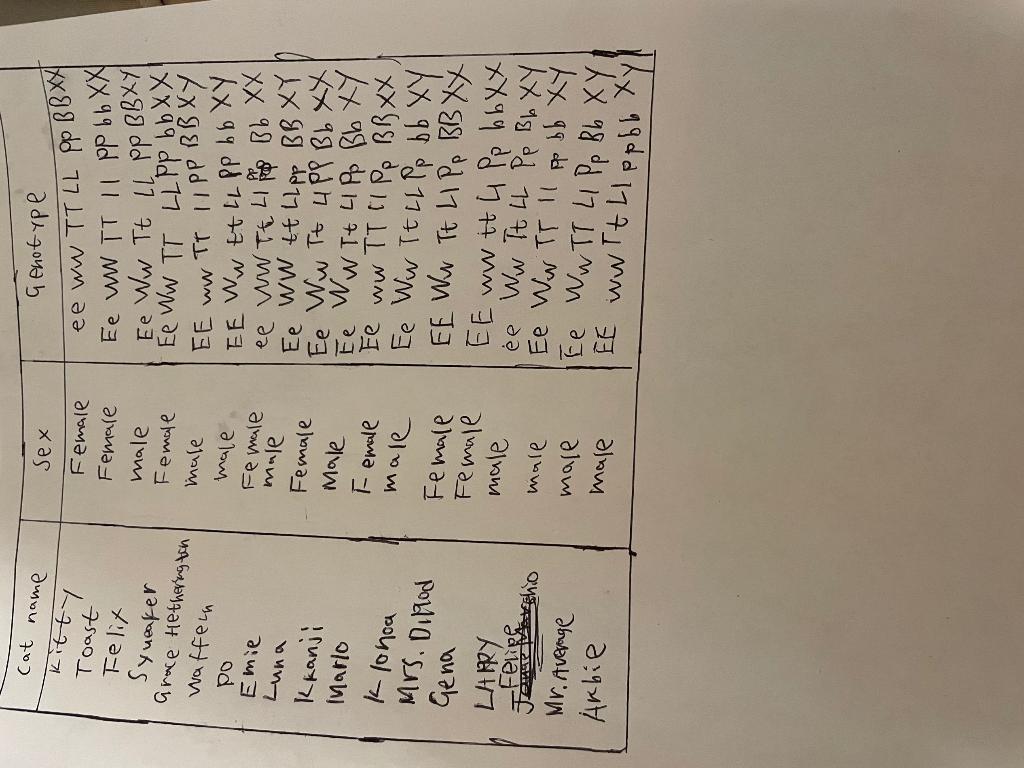 Cat name Sex Genotype
Kitty Female ee ww TT LL pp BB XX
Toast Female Ee WW TT ll pp bb XX
Felix male Ee Ww Tt LL pp BB XY
Female Ee Ww TT LL Pp bb XX
Grace Hetherington male EE ww Tt ll PP BB XY
Waffeln male EE Ww tt LL pp bb XY
Po Female ee WW Tt Ll Pp Bb XX
Emie male Ee WW tt LL pp BB XY
Luna Female Ee Ww Tt Ll PP Bb XX
Kkanji Male Ee Ww Tt Ll Pp Bb XY
Mario Female Ee ww TT Ll Pp BB XX
Klonoa male Ee Ww Tt LL Pp bb XY
Mrs. Female EE Ww Tt Ll Pp BB XX
Gena Female EE ww tt Ll Pp bb XX
LARRY male ee Ww Tt LL Pp Bb XY
Felipe male Ee Ww TT ll pp bb XY
Mr. Average male Ee Ww TT Ll Pp Bb XY
Arbie male EE ww Tt Ll pp bb XY